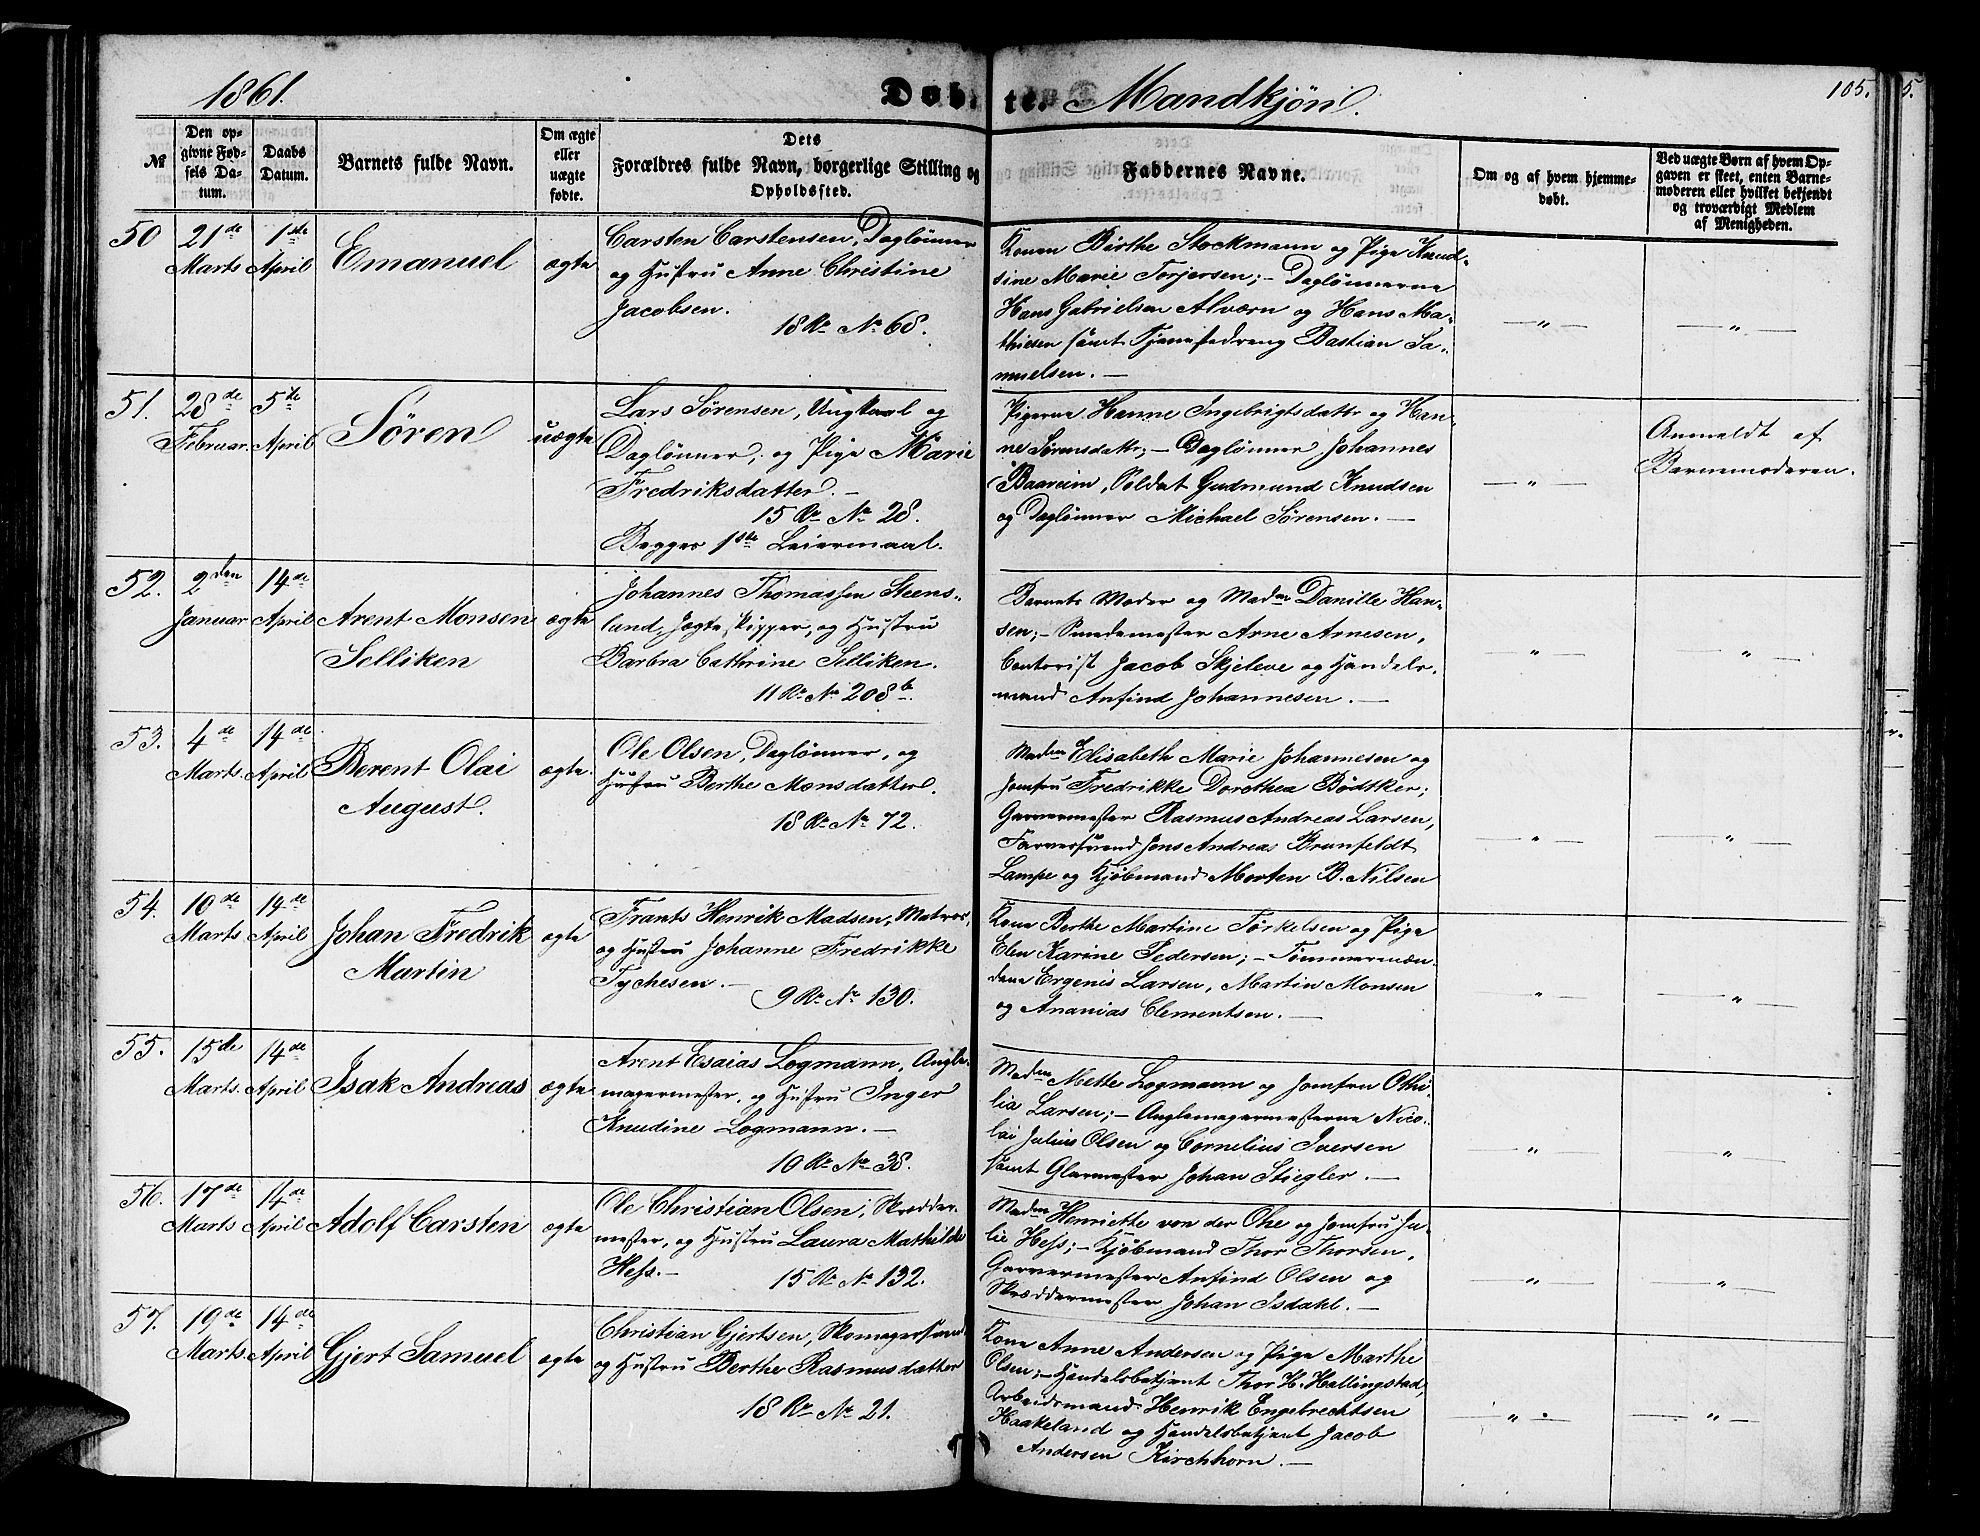 1861.
Døbte. Mandkjøn.
105.
5.
№
Den op-
givne Fød-
sels Da-
tum.
Daabs
Datum.
Barnets fulde Navn.
Om ægte
eller
uægte
fødte.
Dets
Forældres fulde Navn, borgerlige Stilling og
Opholdssted.
Faddernes Navne.
Om og af hvem hjemme-
døbt.
Ved uægte Børn af hvem Op-
gaven er skeet, enten Barne-
moderen eller hvilket bekjendt
og troværdigt Medlem
af Menigheden.
50
21de
Marts
1ste
April
Emanuel
ægte
Carsten Carstensen, Daglønner
og Hustru Anne Christine
Jacobsen.
18 Re № 68.
Konen Birthe Stockmann og Pige Knud-
sine Marie Torjersen; – Daglønnerne
Hans Gabrielsen Alværn og Hans Ma-
thiesen samt Tjenestedreng Bastian Sa-
muelsen. —
— „ —
— „ —
51.
28de
Februar.
5te
April
Søren
uægte
Lars Sørensen, Ungkarl og
Daglønner, og Pige Marie
Fredriksdatter. —
15 Re № 28.
Begges 1ste Leiermaal.
Pigerne Hanne Ingebrigtsdattr og Han-
ne Sørensdattr; – Daglønner Johannes
Baareim, Soldat Gudmund Knudsen
og Daglønner Michael Sørensen. —
— „ —
Anmeldt af
Barnemoderen.
52.
2den
Januar
14de
April
Arent Monsen
Selliken
ægte
Johannes Thomassen Steens-
land, Jægteskipper, og Hustru
Barbra Cathrine Selliken.
11 Re № 208b.
Barnets Moder og Madm Danille Han-
sen; – Smedemester Arne Arnesen,
Contorist Jacob Skjeleve og Handels-
mand Anfind Johannesen. —
— „ —
— „ —
53.
4de
Marts.
14de
April
Berent Olai
August.
ægte.
Ole Olsen, Daglønner, og
Hustru Berthe Monsdatter.
18 Re № 72.
Madm Elisabeth Marie Johannesen og
Jomfru Fredrikke Dorothea Bödtker;
Garvermester Rasmus Andreas Larsen,
Farversvend Jens Andreas Brunfeldt
Lampe og Kjøbmand Morten B. Nilsen
— „ —
— „ —
54.
10de
Marts
14de
April
Johan Fredrik
Martin
ægte
Frants Henrik Madsen, Matros,
og Hustru Johanne Fredrikke
Tychesen. —
9 Re № 130.
Kone Berthe Martine Torkelsen og Pige
Elen Karine Pedersen; – Tømmermæn-
dene Ergenis Larsen, Martin Monsen
og Ananias Clementsen. —
— „ —
— „ —
55.
15de
Marts.
14de
April
Isak Andreas
ægte
Arent Esaias Logmann, Angle-
magermester, og Hustru Inger
Knudine Logmann. —
10 Re № 38.
Madm Mette Logmann og Jomfru Othi-
lia Larsen; – Anglemagermesterne Nico-
lai Julius Olsen og Cornelius Iversen
samt Glarmester Johan Stiegler. —
— „ —
— „ —
56.
17de
Marts
14de
April
Adolf Carsten
ægte
Ole Christian Olsen, Skrædder-
mester, og Hustru Laura Mathilde
Hess. —
15 Re № 132.
Madm Henriette von der Ohe og Jomfru Ju-
lie Hess; – Kjøbmand Thor Thorsen,
Garvermester Anfind Olsen og
Skræddermester Johan Isdahl. —
— „ —
— „ —
57.
19de
Marts.
14de
April
Gjert Samuel
ægte
Christian Gjertsen, Skomagersvend
og Hustru Berthe Rasmusdatter
18 Re № 21.
Kone Anne Andersen og Pige Marthe
Olsen; – Handelsbetjent Thor H. Hallingstad,
Arbeidsmand Henrik Engebrechtsen
Haakeland og Handelsbetjent Jacob
Andersen Kirchhorn. —
— „ —
— „ —